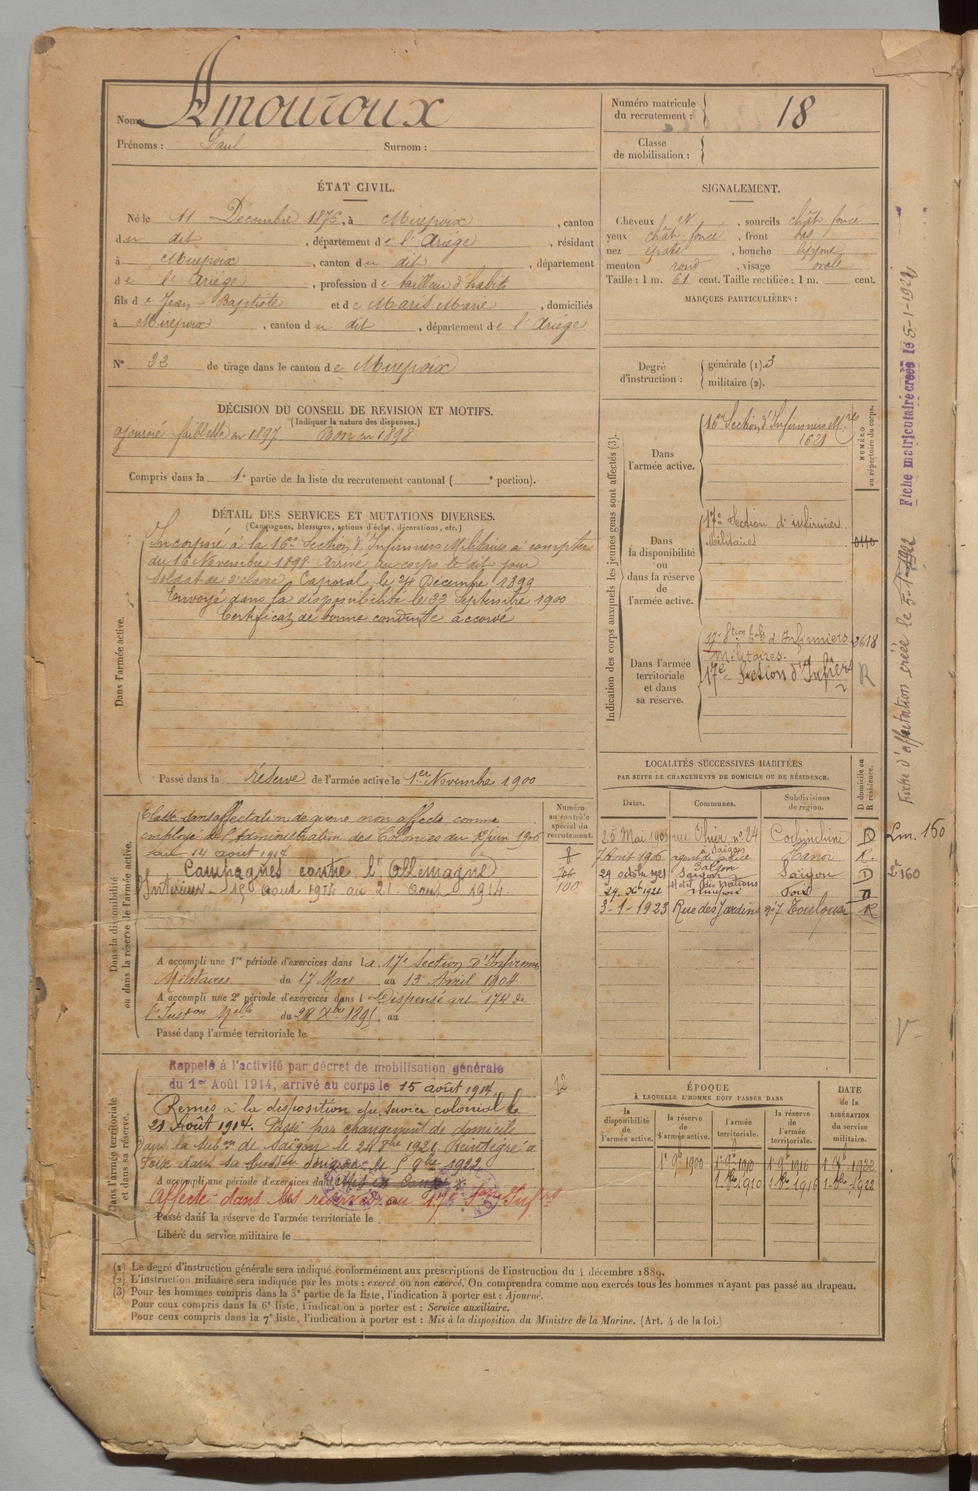 Nom : Amouroux
Prénoms : Paul Surnom :
Numéro matricule du recrutement : 18
Classe de mobilisation :
ÉTAT CIVIL.
Né le 11 Décembre 1876, à Mirepoix, canton
du dit, département de l'Ariège, résidant
à Mirepoix, canton du dit, département
de l'Ariège, profession de tailleur d'habits
fils de Jean-Baptiste et de Maris Marie, domiciliés
à Mirepoix, canton du dit, département de l'Ariège
N° 32 de tirage dans le canton de Mirepoix
SIGNALEMENT.
Cheveux N, sourcils chât. foncé
yeux chât. foncé, front bas
nez épaté, bouche moyenne
menton rond, visage ovale
Taille : 1 m. 61 cent. Taille rectifiée : 1 m. cent.
MARQUES PARTICULIÈRES :
Degré d'instruction : générale (1). 3
militaire (2).
DÉCISION DU CONSEIL DE REVISION ET MOTIFS.
(Indiquer la nature des dispenses.)
ajourné faiblesse en 1897. Bon en 1898
Compris dans la 1e partie de la liste du recrutement cantonal ( e portion).
DÉTAIL DES SERVICES ET MUTATIONS DIVERSES.
(Campagnes, blessures, actions d'éclat, décorations, etc.)
Dans l'armée active.
Incorporé à la 16e Section d'Infirmiers Militaires à compter
du 16 Novembre 1898 Arrivé au corps le dit jour
soldat de 2e classe. Caporal le 24 Décembre 1899
Envoyé dans la disponibilité le 22 Septembre 1900
Certificat de bonne conduite accordé
Passé dans la réserve de l'armée active le 1er Novembre 1900
Indication des corps auxquels les jeunes gens sont affectés (3).
NUMÉRO au répertoire du corps.
Dans l'armée active.
16e Section d'Infirmiers Mres
1621
Dans la disponibilité ou dans la réserve de l'armée active.
17e Section d'infirmiers
Militaires
Dans l'armée territoriale et dans sa réserve.
17e Son tale d'Infirmiers
Militaires. 2618
17e Section d'Infiers R
Dans la disponibilité ou dans la réserve de l'armée active.
Numéro au contrôle spécial du recrutement.
Classé sans affectation de guerre, non affecté comme
employé de l'Administration des Colonies du juin 1906
au 14 août 1914
Campagnes contre l'Allemagne
Intérieur 15 Août 1914 au 21 Août 1914.
100
A accompli une 1re période d'exercices dans la 17e Section d'Infirmiers
Militaires du 17 Mars au 13 Avril 1904
A accompli une 2e période d'exercices dans l Dispensé art. 174 de
l'Juston Melle du 28 Xbre 1895 au
Passé dans l'armée territoriale le
LOCALITÉS SUCCESSIVES HABITÉES
PAR SUITE DE CHANGEMENTS DE DOMICILE OU DE RÉSIDENCE.
Dates. Communes. Subdivisions de région. D domicile ou R résidence.
25 Mai 1905 rue Ohier n° 24 à Saigon Cochinchine D
7 Août 1906 agent de police Hanoi R.
29 octobre 1921 Saïgon Saïgon D
29 Xbre 1921 Hôtel des Nations Mirepoix Foix D
3-1-1923 Rue des Jardins n° 7 Toulouse R
Dans l'armée territoriale et dans sa réserve.
Rappelé à l'activité par décret de mobilisation générale
du 1er Août 1914, arrivé au corps le 15 août 1914
Remis à la disposition du service colonial le
21 Août 1914. Passé par changement de domicile
dans la subon de Saïgon le 24 8bre 1921. Réintégré à
Foix dans sa le 5 9bre 1922
A accompli une période d'exercices dans
Affecté dans les réserves au 17e Son Infres
Passé dans la réserve de l'armée territoriale le
Libéré du service militaire le
12
ÉPOQUE
À LAQUELLE L'HOMME DOIT PASSER DANS
la disponibilité de l'armée active. la réserve de l'armée active. l'armée territoriale. la réserve de l'armée territoriale.
DATE de la LIBÉRATION du service militaire.
1er 9bre 1900 1er 9bre 1910 1er 9bre 1916 1er 9bre 1922
1 8bre 1910 1 8bre 1916 1 8bre 1922
(1) Le degré d'instruction générale sera indiqué conformément aux prescriptions de l'instruction du 4 décembre 1889.
(2) L'instruction militaire sera indiquée par les mots : exercé ou non exercé. On comprendra comme non exercés tous les hommes n'ayant pas passé au drapeau.
(3) Pour les hommes compris dans la 5e partie de la liste, l'indication à porter est : Ajourné.
Pour ceux compris dans la 6e liste, l'indication à porter est : Service auxiliaire.
Pour ceux compris dans la 7e liste, l'indication à porter est : Mis à la disposition du Ministre de la Marine. (Art. 4 de la loi.)
Fiche matriculaire créée le 5-1-1922
Fiche d'affectation créée le 5-1-1922
Lm. 160
160